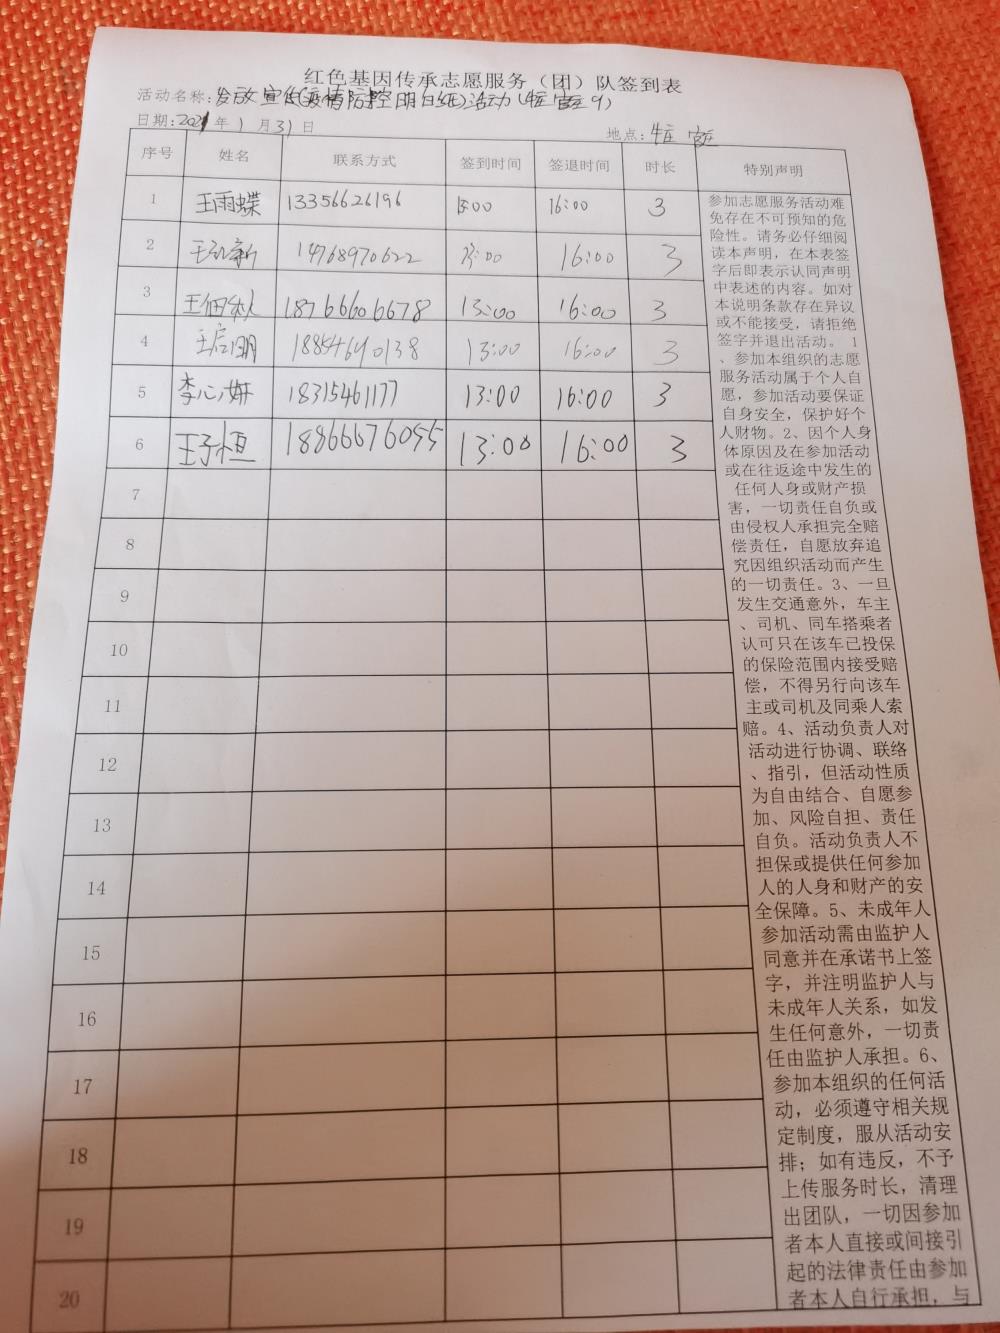 红色基因传承志愿服务（团）队签到表
活动名称:发放宣传(疫情防控明白纸)活动(牛庄 官庄 9)
日期:2021年1月31日 地点:牛庄 官庄
序号 姓名 联系方式 签到时间 签退时间 时长 特别声明
1 王雨蝶 13356626196 13:00 16:00 3
2 14768970622 13:00 16:00 3
3 18766606678 13:00 16:00 3
4 王启明 18854690138 13:00 16:00 3
5 李心妍 18315461177 13:00 16:00 3
6 王子恒 18866676055 13:00 16:00 3
7
8
9
10
11
12
13
14
15
16
17
18
19
20
参加志愿服务活动难
免存在不可预知的危
险性。请务必仔细阅
读本声明，在本表签
字后即表示认同声明
中表述的内容。如对
本说明条款存在异议
或不能接受，请拒绝
签字并退出活动。 1
、参加本组织的志愿
服务活动属于个人自
愿，参加活动要保证
自身安全，保护好个
人财物。2、因个人身
体原因及在参加活动
或在往返途中发生的
任何人身或财产损
害，一切责任自负或
由侵权人承担完全赔
偿责任，自愿放弃追
究因组织活动而产生
的一切责任。3、一旦
发生交通意外，车主
、司机、同车搭乘者
认可只在该车已投保
的保险范围内接受赔
偿，不得另行向该车
主或司机及同乘人索
赔。4、活动负责人对
活动进行协调、联络
、指引，但活动性质
为自由结合、自愿参
加、风险自担、责任
自负。活动负责人不
担保或提供任何参加
人的人身和财产的安
全保障。5、未成年人
参加活动需由监护人
同意并在承诺书上签
字，并注明监护人与
未成年人关系，如发
生任何意外，一切责
任由监护人承担。6、
参加本组织的任何活
动，必须遵守相关规
定制度，服从活动安
排；如有违反，不予
上传服务时长，清理
出团队，一切因参加
者本人直接或间接引
起的法律责任由参加
者本人自行承担，与